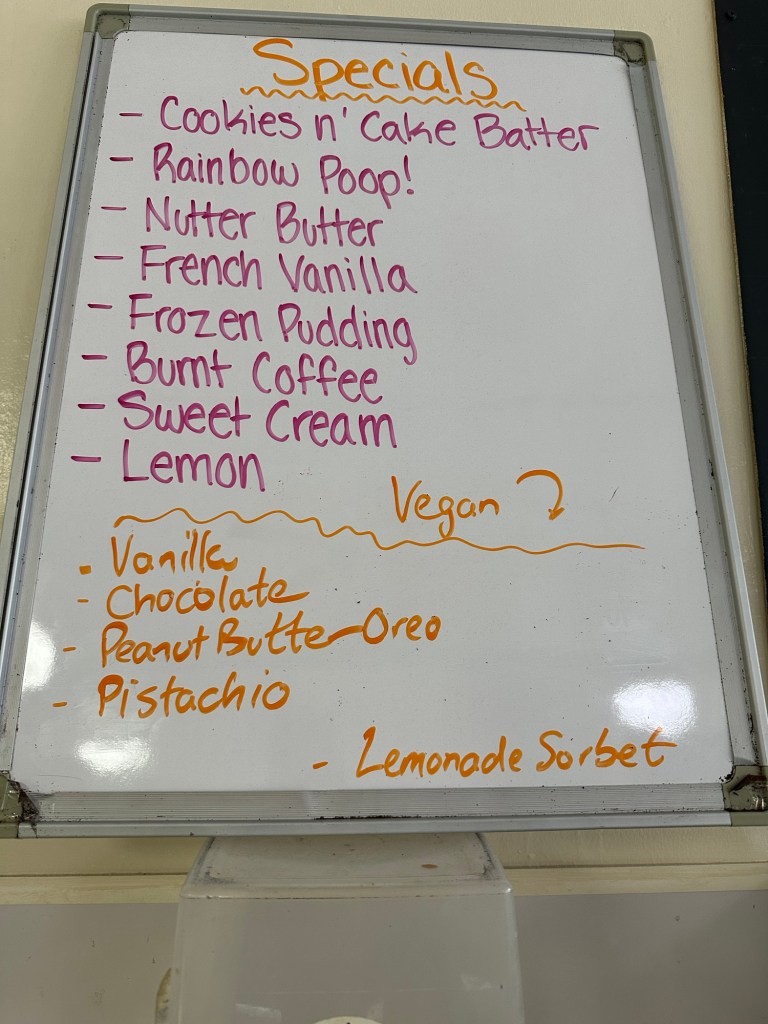 Specials
- Cookies n' Cake Batter
- Rainbow Poop!
- Nutter Butter
- French Vanilla
- Frozen Pudding
- Burnt Coffee
- Sweet Cream
- Lemon
Vegan
- Vanilla
- Chocolate
- Peanut Butter Oreo
- Pistachio
- Lemonade Sorbet